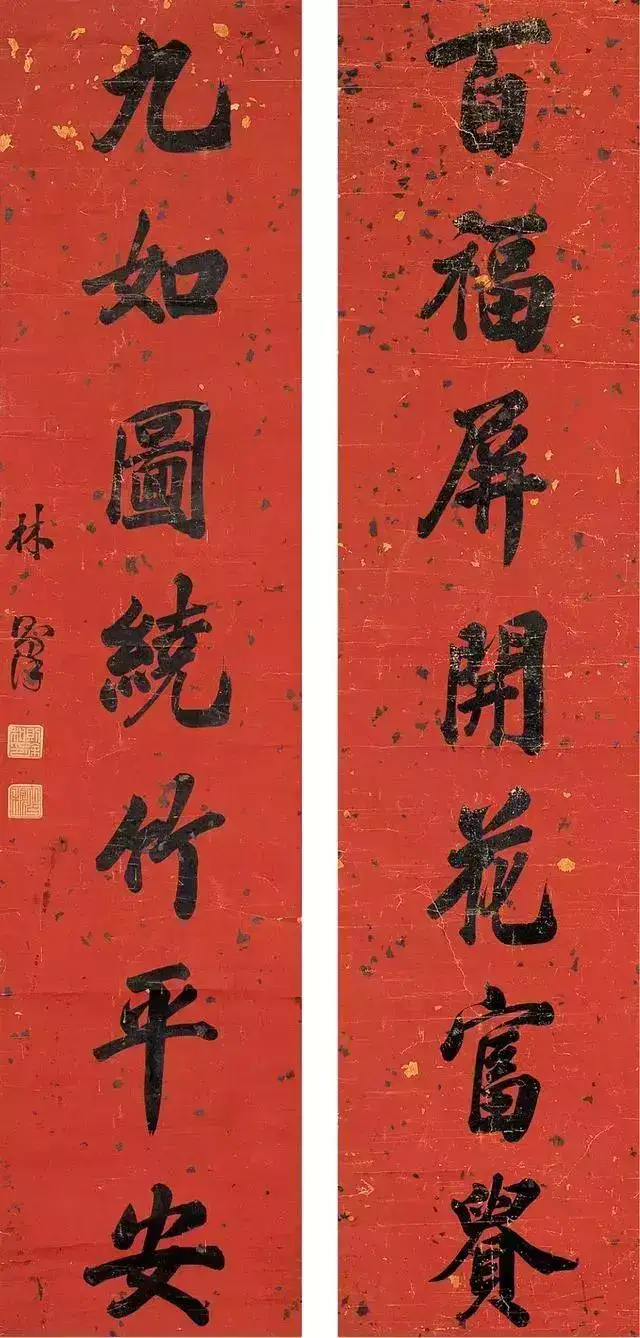 百福屏開花富貴
九如圖繞竹平安
林則徐